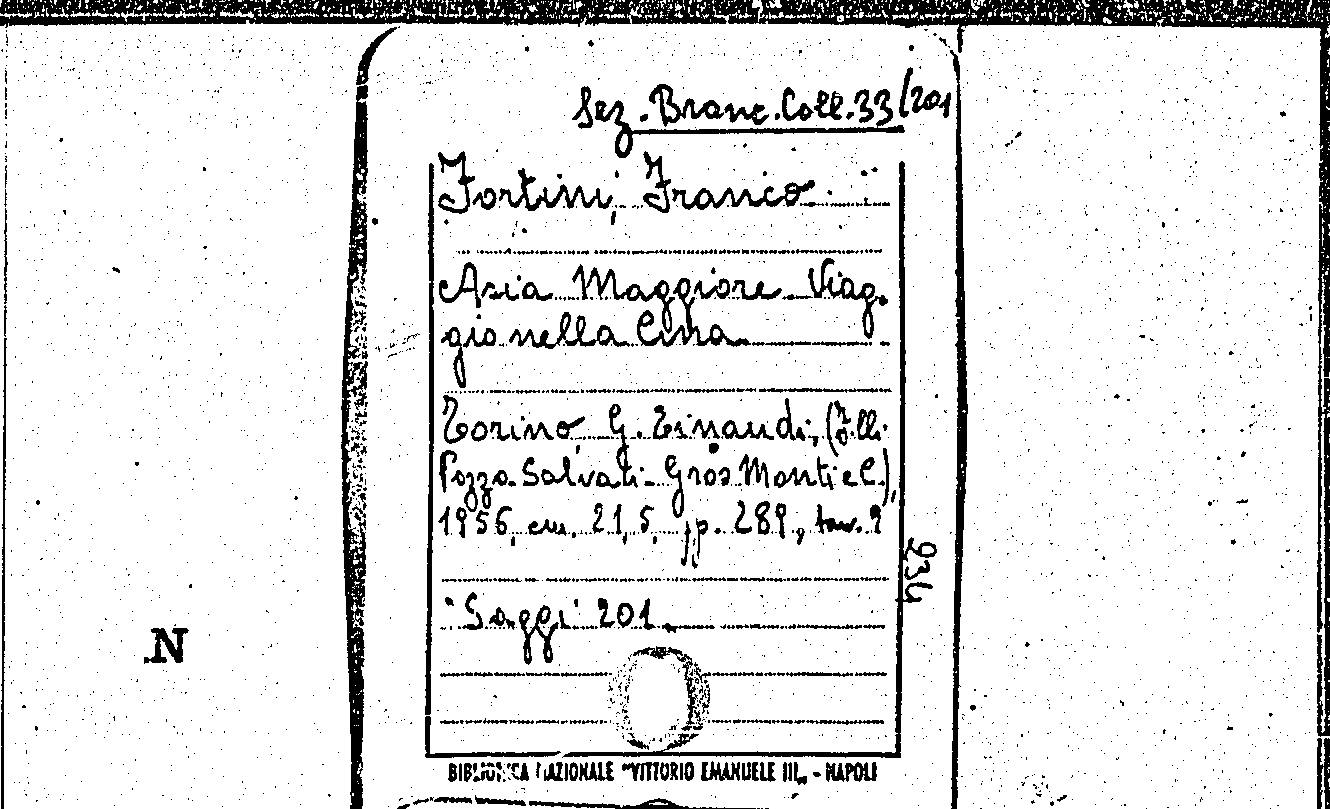 Sez. Branc. Coll. 33/201
Fortini, Franco
Asia Maggiore. Viag-
gio nella Cina.
Torino, G. Einaudi, (F.lli
Pozzo-Salvati-Gros Monti e C.),
1956, cm. 21,5, pp. 289, tav. 9
234
"Saggi" 201.
N
BIBLIOTECA NAZIONALE "VITTORIO EMANUELE III„ - NAPOLI